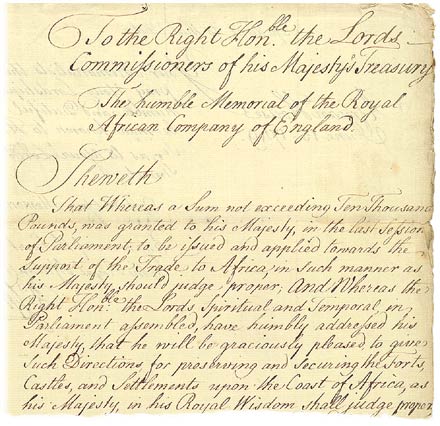 To the Right Hon.ble the Lords
Commissioners of his Majesty's Treasury
The humble Memorial of the Royal
African Company of England.
Sheweth
That Whereas a Sum not exceeding Ten Thousand
Pounds, was granted to his Majesty, in the last Session
of Parliament, to be issued and applied towards the
Support of the Trade to Africa, in such manner as
his Majesty should judge proper; And Whereas the
Right Hon.ble the Lords Spiritual and Temporal in
Parliament assembled, have humbly addressed his
Majesty, that he will be graciously pleased to give
such Directions for preserving and Securing the Forts,
Castles, and Settlements upon the Coast of Africa, as
his Majesty, in his Royal Wisdom shall judge proper